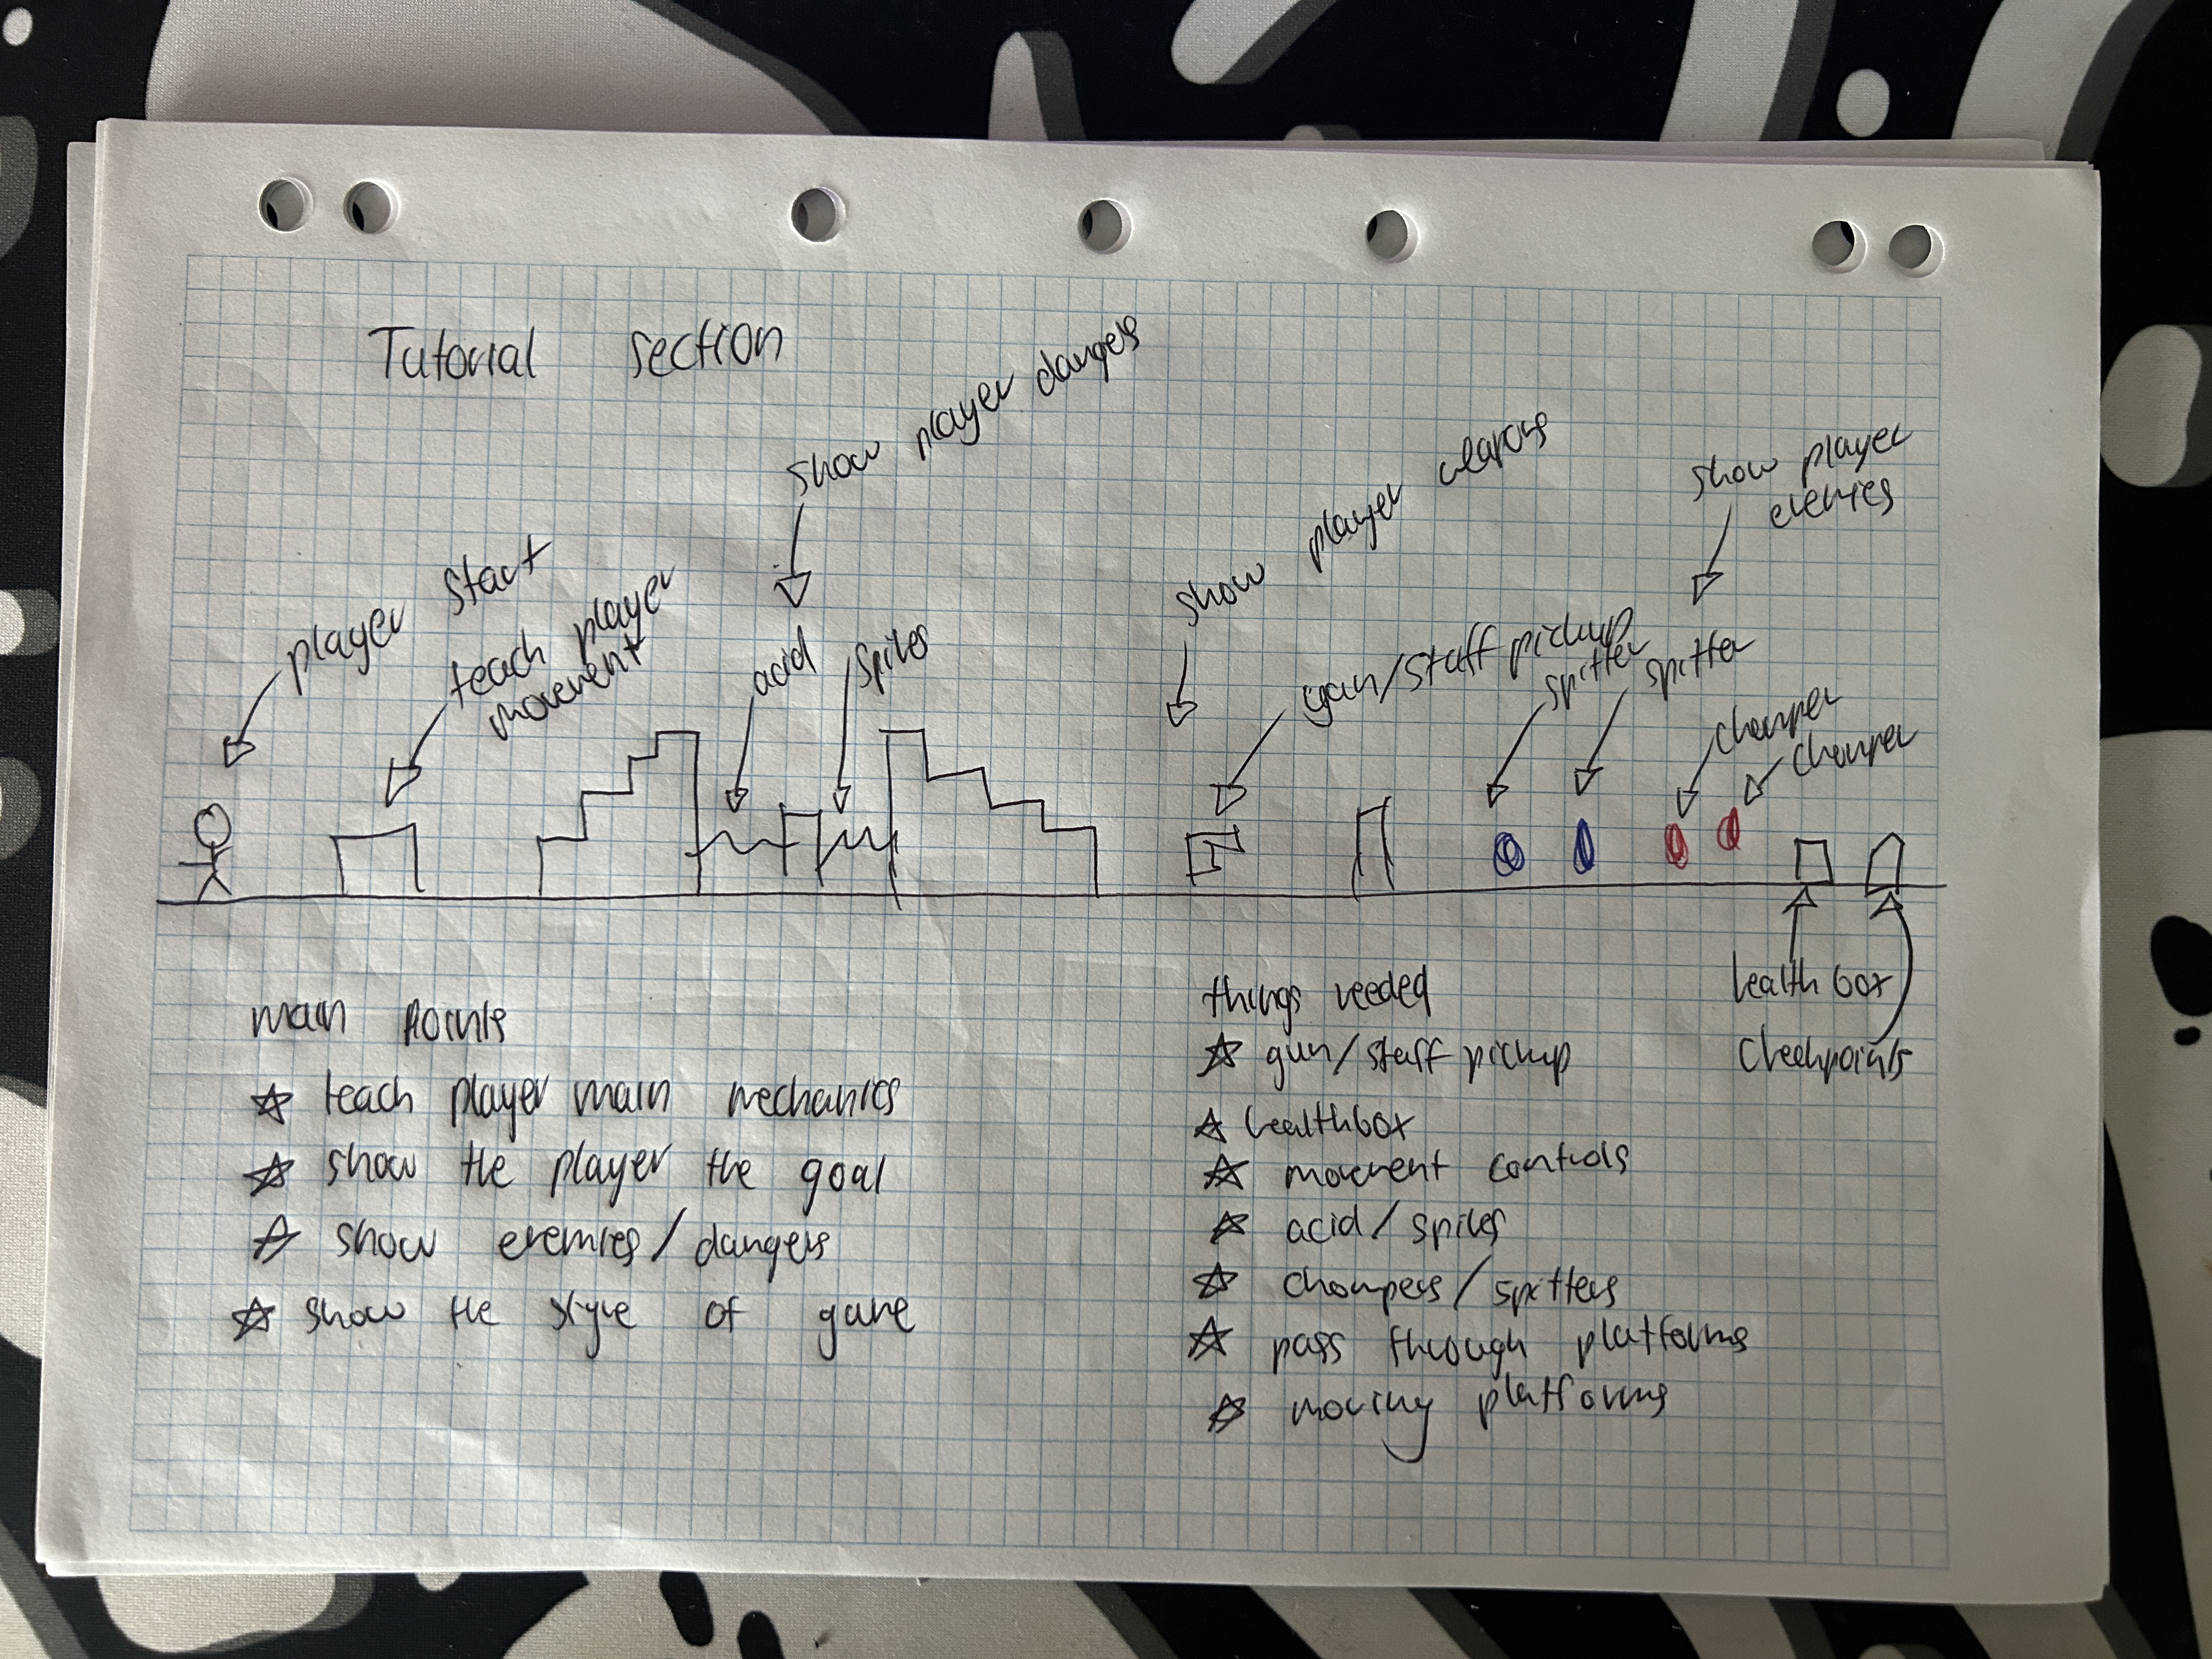 Tutorial Section
show player dangers
show player weapons
show player enemies
player start
teach player
movement
acid
spikes
gun/staff pickup
spitter
spitter
chomper
chomper
health box
checkpoint
main points
☆ teach player main mechanics
☆ show the player the goal
☆ show enemies/dangers
☆ show the style of game
things needed
☆ gun/staff pickup
☆ healthbox
☆ movement controls
☆ acid/spikes
☆ chompers/spitters
☆ pass through platforms
☆ moving platforms